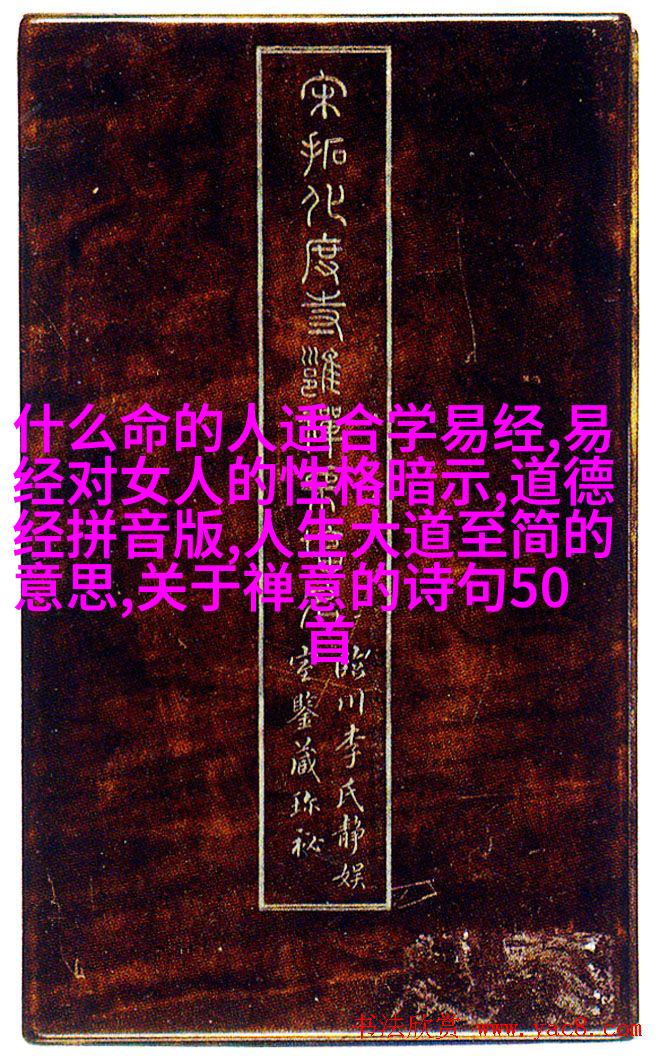 宋拓化度寺雝禪
臨川李氏靜娱
室鑒藏珍祕
什么命的人适合学易经,易
经对女人的性格暗示,道德
经拼音版,人生大道至简的
意思,关于禅意的诗句50
首
书法欣赏 www.yac8.com